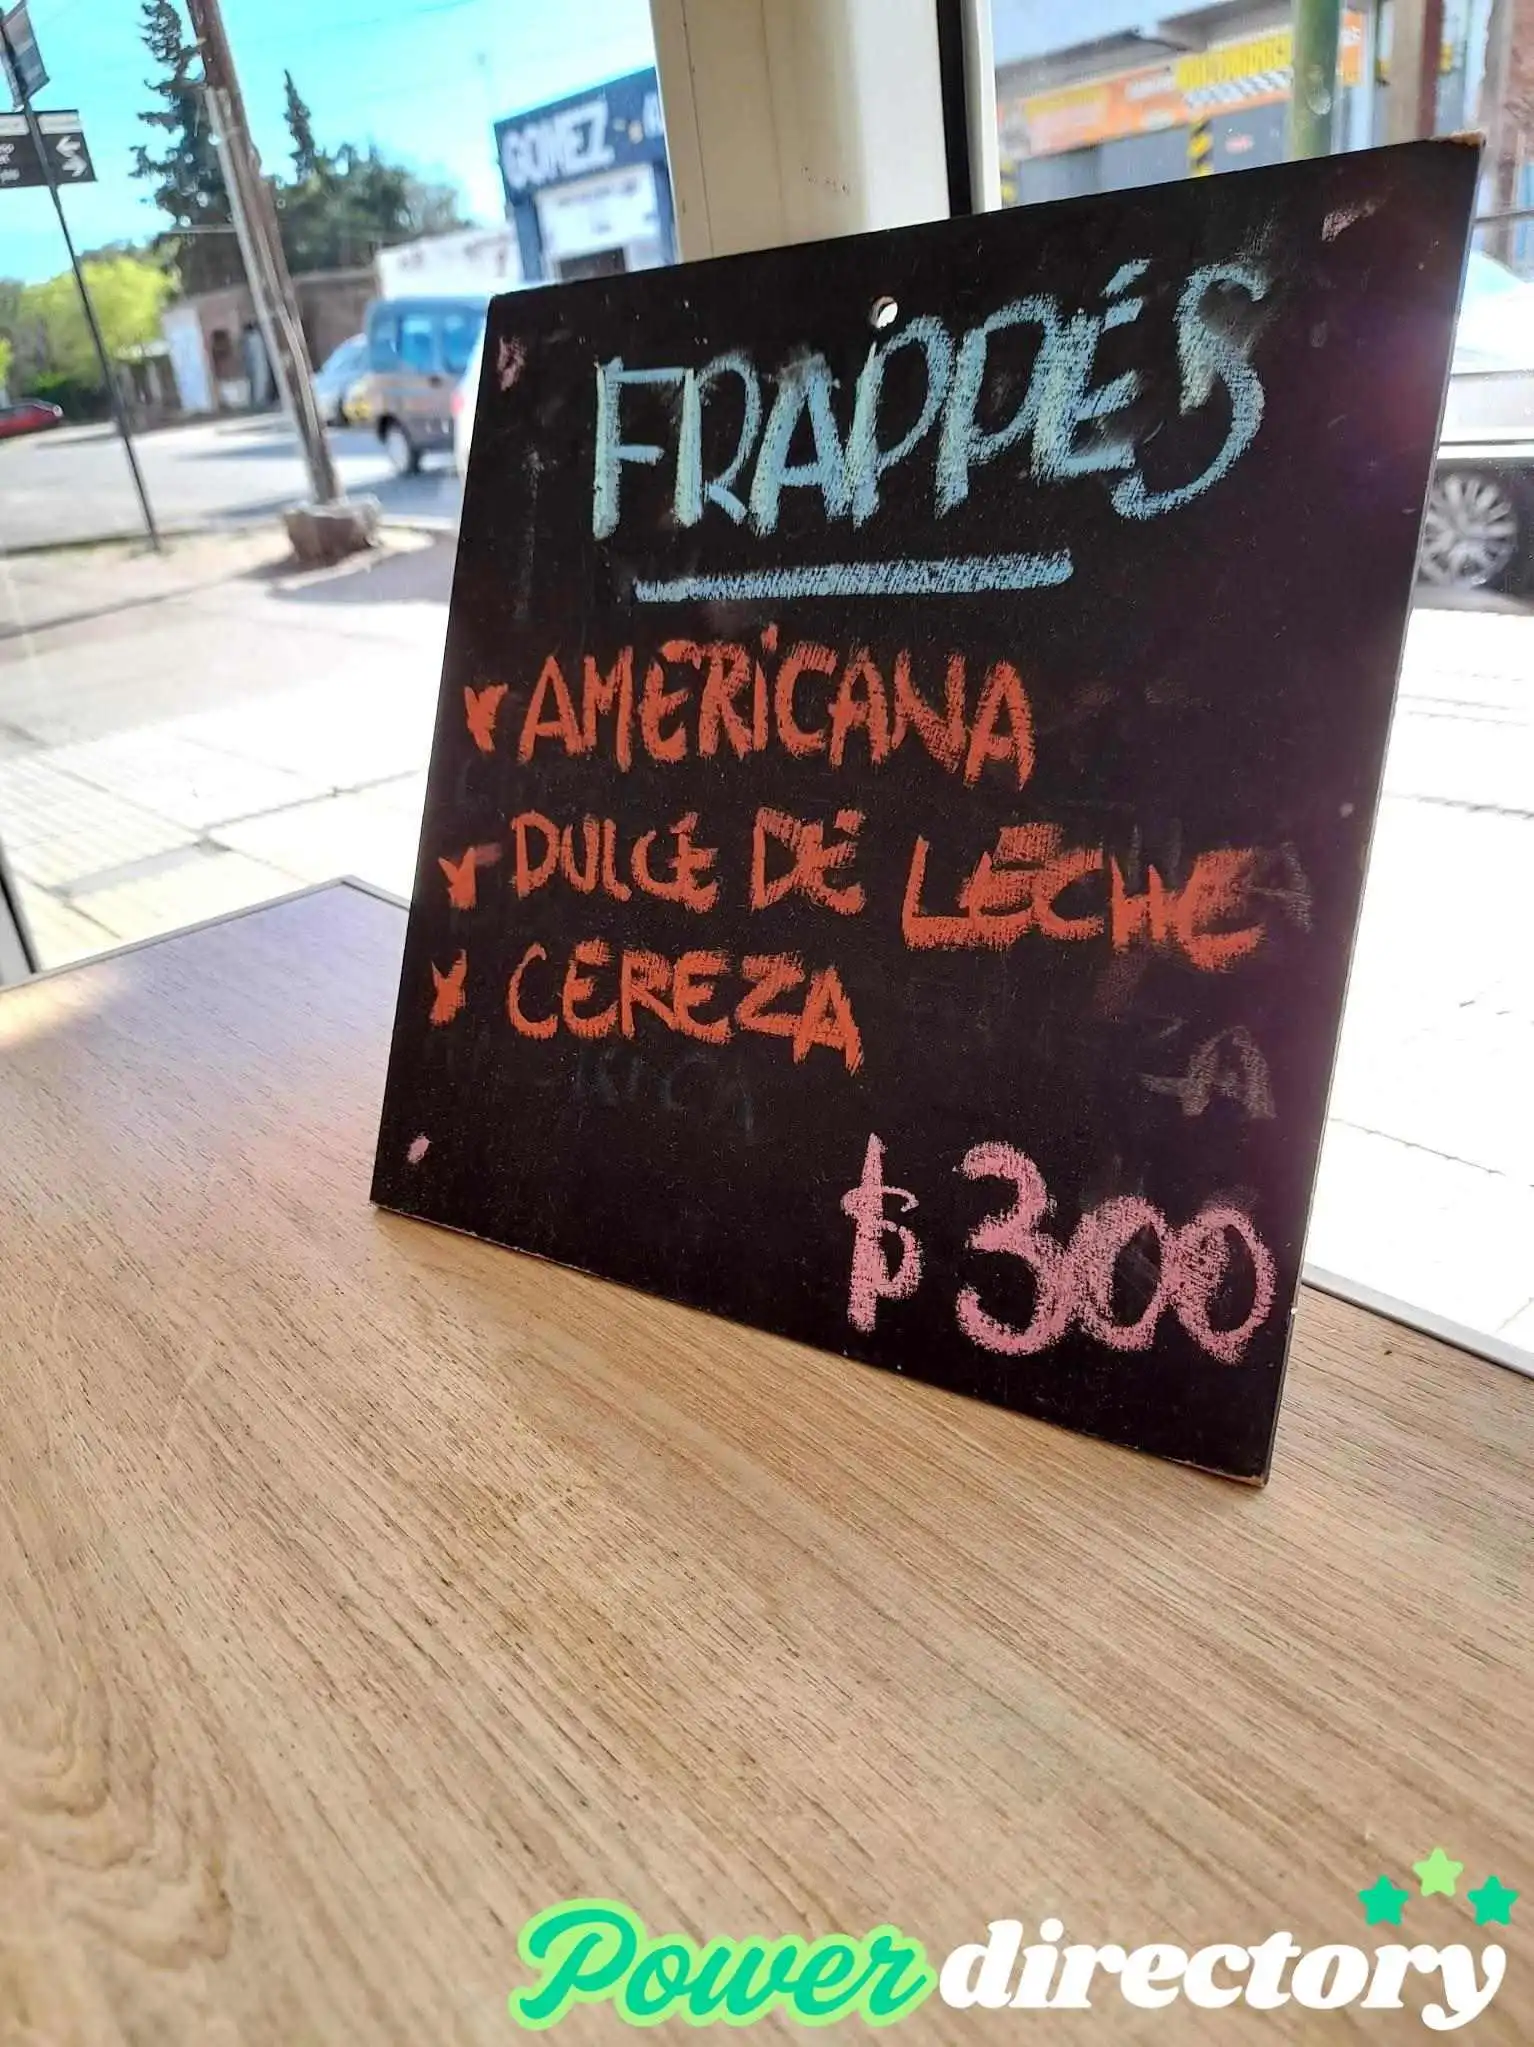 GOMEZ
FRAPPÉS
AMERICANA
DULCE DE LECHE
CEREZA
$300
Power directory